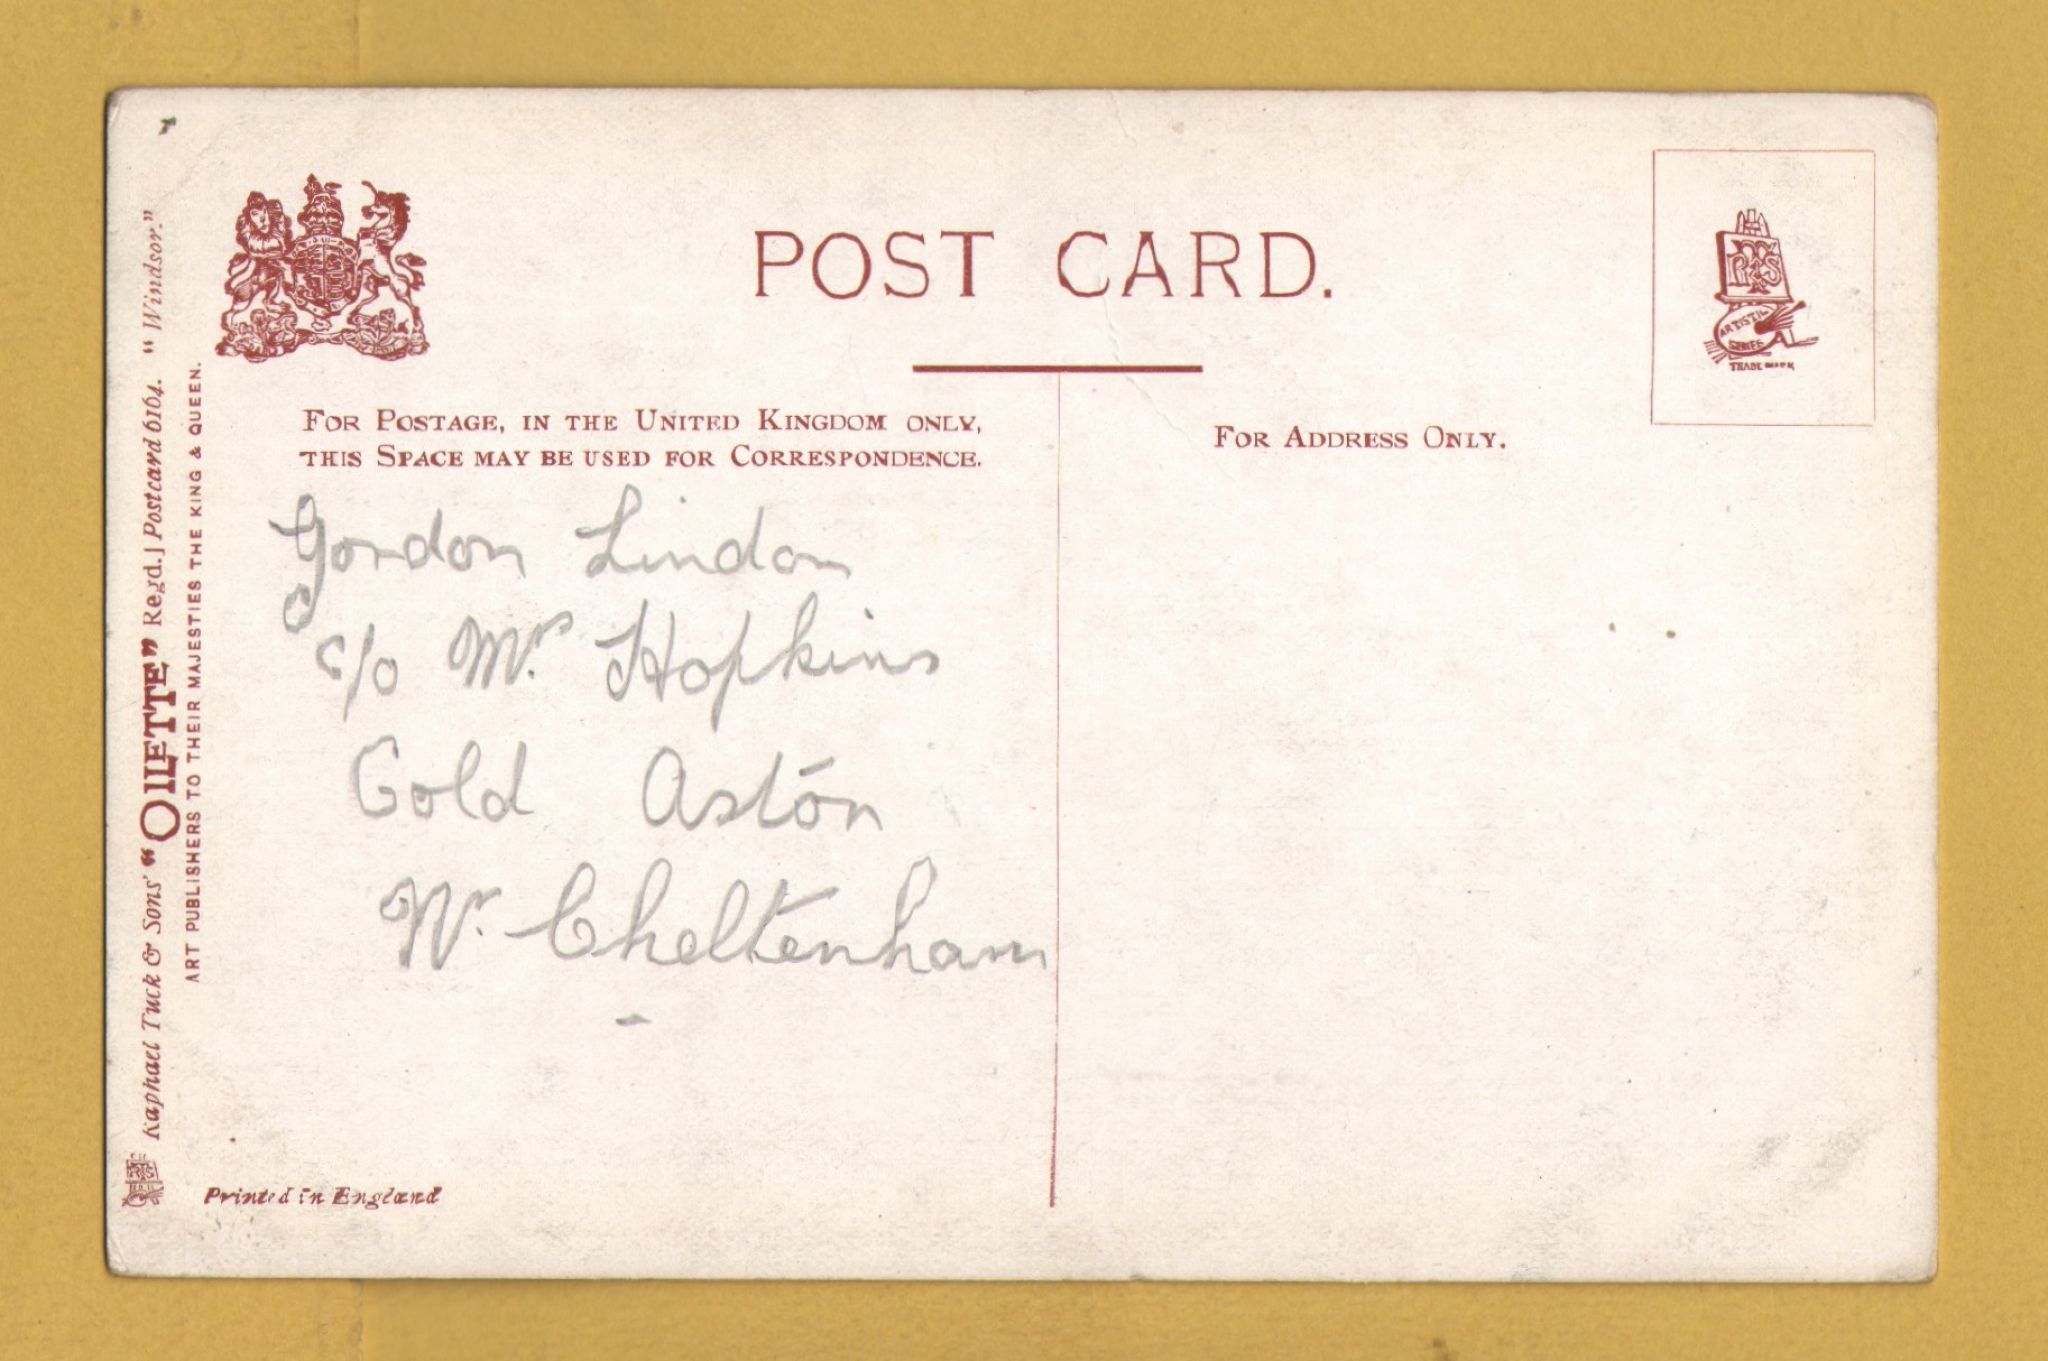 POST CARD.
FOR POSTAGE, IN THE UNITED KINGDOM ONLY,
THIS SPACE MAY BE USED FOR CORRESPONDENCE.
FOR ADDRESS ONLY.
ARTISTIC
SERIES
TRADE MARK
Gordon Lindon
c/o Mrs Hopkins
Cold Aston
Nr. Cheltenham
Raphael Tuck & Sons' "OILETTE" Regd.] Postcard 6164. "Windsor."
ART PUBLISHERS TO THEIR MAJESTIES THE KING & QUEEN.
Printed in England